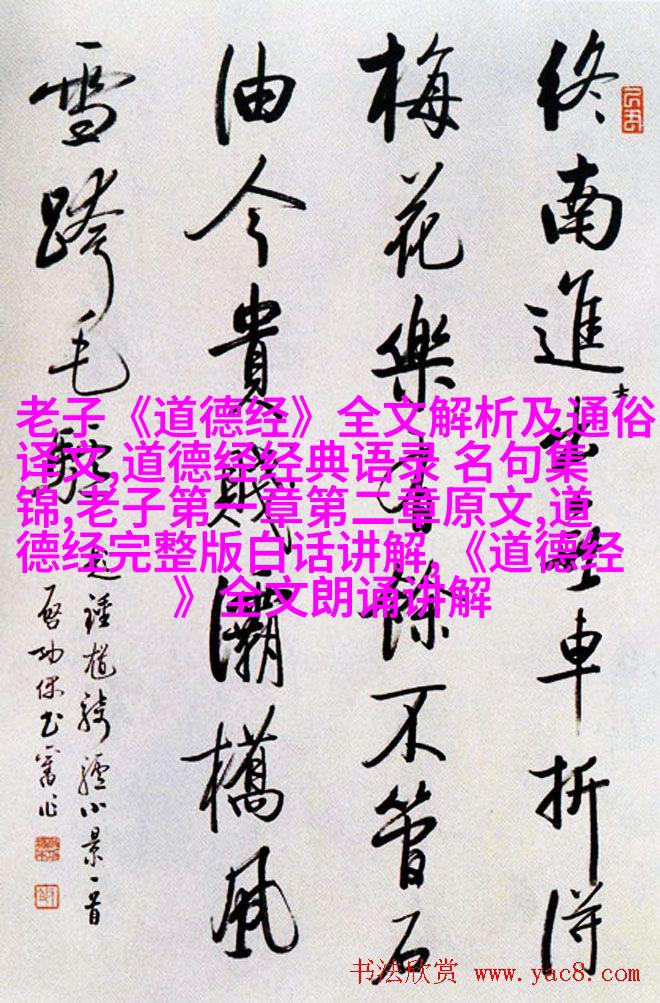 終南進士車折得
梅花樂有餘不管
由今貴賤灞橋風
雪跨毛驢
題鍾馗騎驢小景一首
啟功舊作
老子《道德经》全文解析及通俗
译文,道德经经典语录 名句集
锦,老子第一章第二章原文,道
德经完整版白话讲解,《道德经
》全文朗诵讲解
书法欣赏 www.yac8.com